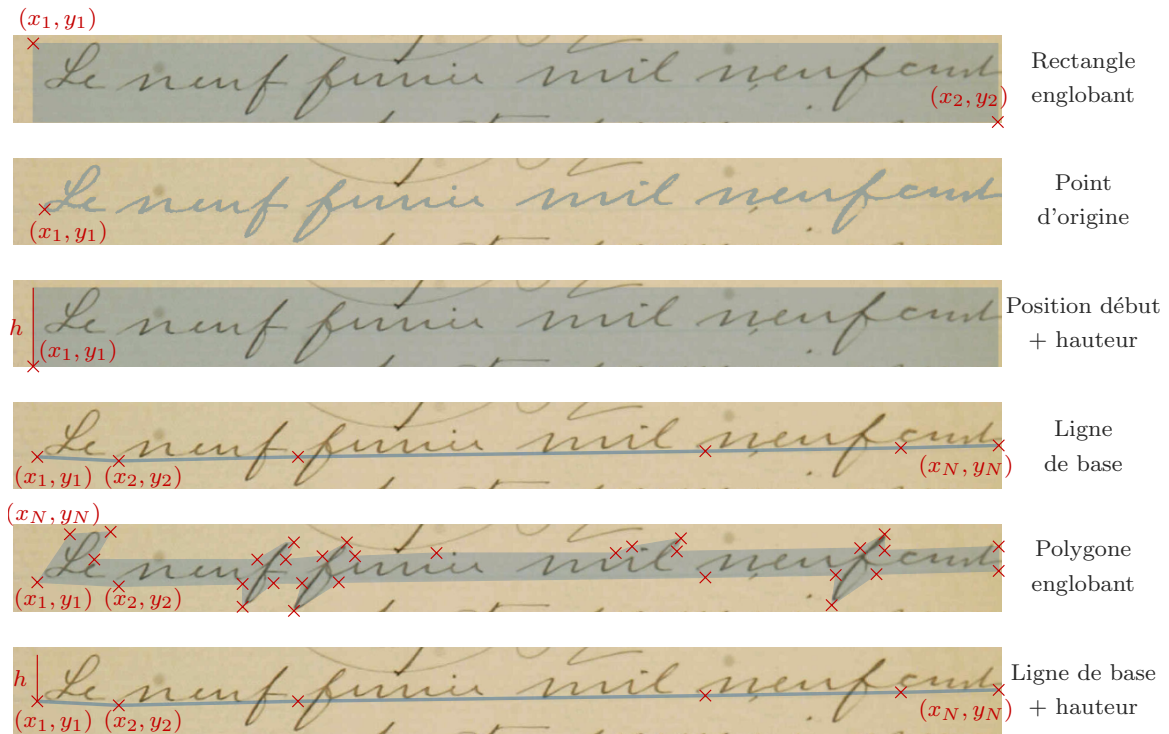 (x₁, y₁)
Le neuf fevrier mil neuf cent
(x₂, y₂)
Rectangle
englobant
Le neuf fevrier mil neuf cent
(x₁, y₁)
Point
d'origine
h
Le neuf fevrier mil neuf cent
(x₁, y₁)
Position début
+ hauteur
Le neuf fevrier mil neuf cent
(x₁, y₁) (x₂, y₂) (x_N, y_N)
Ligne
de base
(x_N, y_N)
Le neuf fevrier mil neuf cent
(x₁, y₁) (x₂, y₂)
Polygone
englobant
h
Le neuf fevrier mil neuf cent
(x₁, y₁) (x₂, y₂) (x_N, y_N)
Ligne de base
+ hauteur